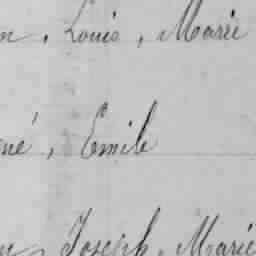 n, Louis, Marie
né, Emile
n, Joseph, Marie